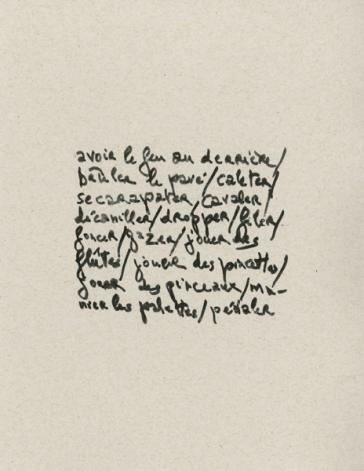 avoir le feu au derrière/
brûler le pavé/caleter/
se carapater/cavaler/
décaniller/dropper/filer/
foncer/gazer/jouer des
flûtes/jouer des pincettes/
jouer des pinceaux/ma-
nier les palettes/pédaler